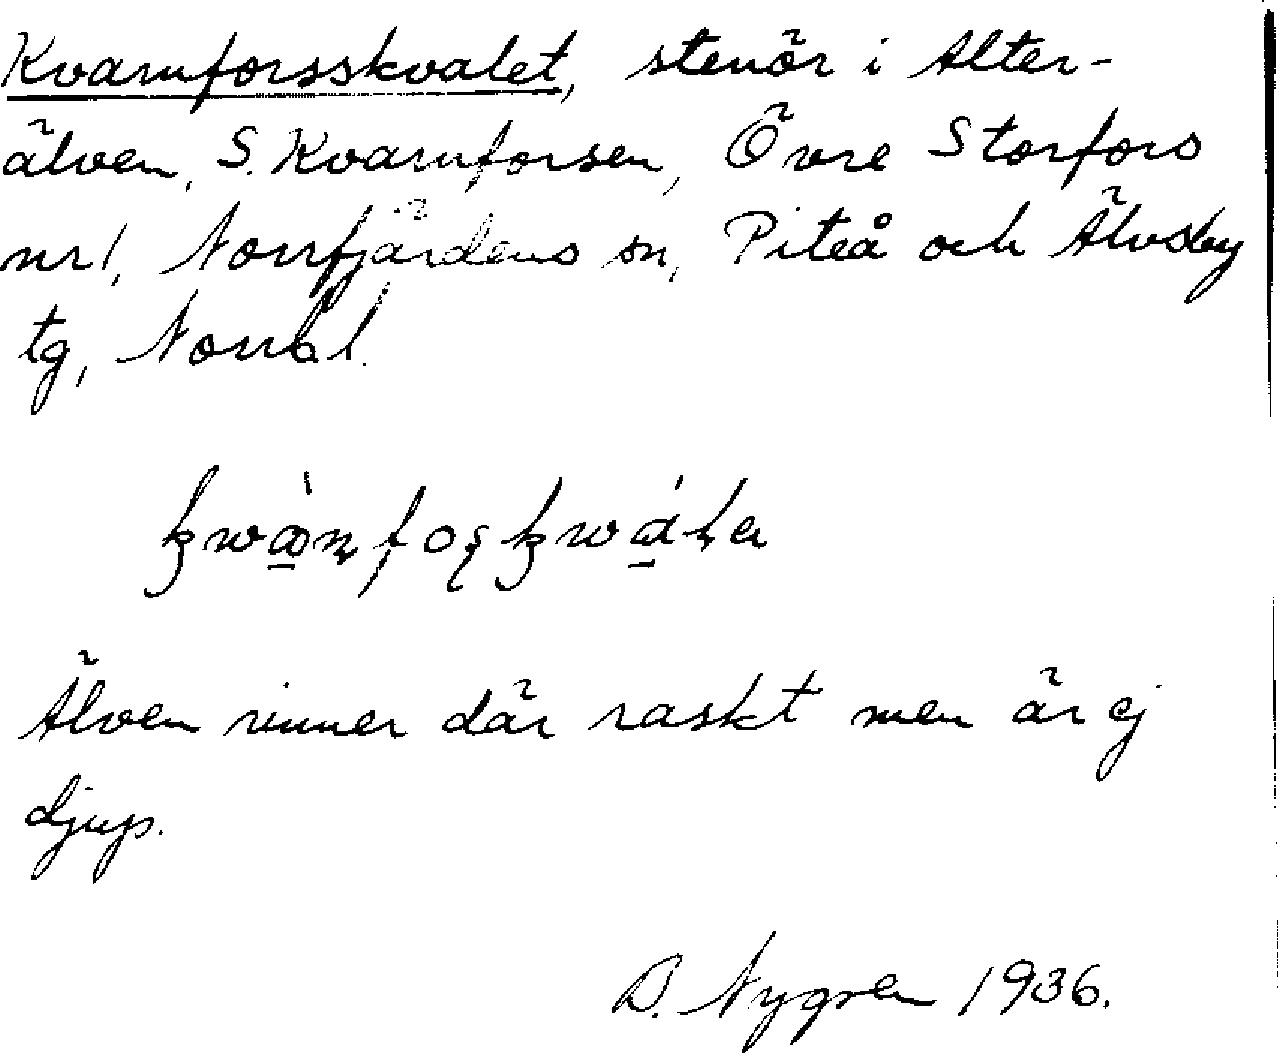 Kvarnforsskvalet, stenör i Alter-
älven, S. Kvarnforsen, Övre Storfors
nr 1, Norrfjärdens sn, Piteå och Älvsby
tg, Norrb. l.
Älven rinner där raskt men är ej
djup.
B. Nygren 1936.